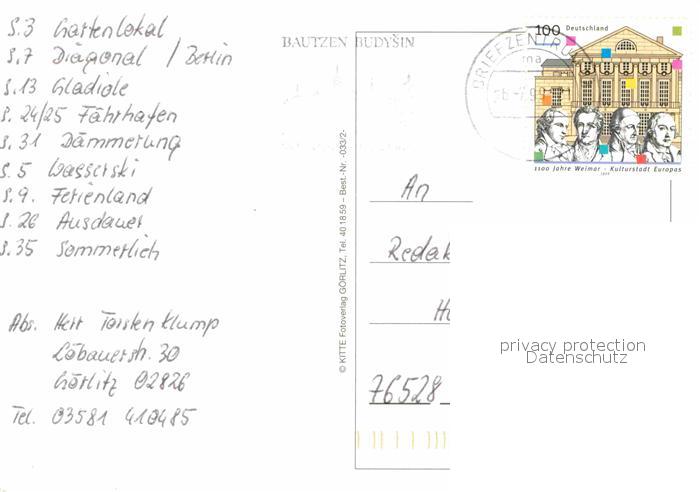 S.3 Gartenlokal
S.7 Diagonal / Berlin
S.13 Gladiole
S. 24/25 Fährhafen
S. 31 Dämmerung
S. 5 Wasserski
S. 9. Ferienland
S. 26 Ausdauer
S. 35 Sommerlich
Abs. Herr Torsten Klump
Löbauerstr. 30
Görlitz 02826
Tel. 03581 410485
BAUTZEN BUDYŠIN
© KITTE Fotoverlag GÖRLITZ, Tel. 40 18 59 – Best.-Nr. -033/2-
BRIEFZENTRUM
100 Deutschland
1100 Jahre Weimar - Kulturstadt Europas
1999
An
Redak
76528
privacy protection
Datenschutz